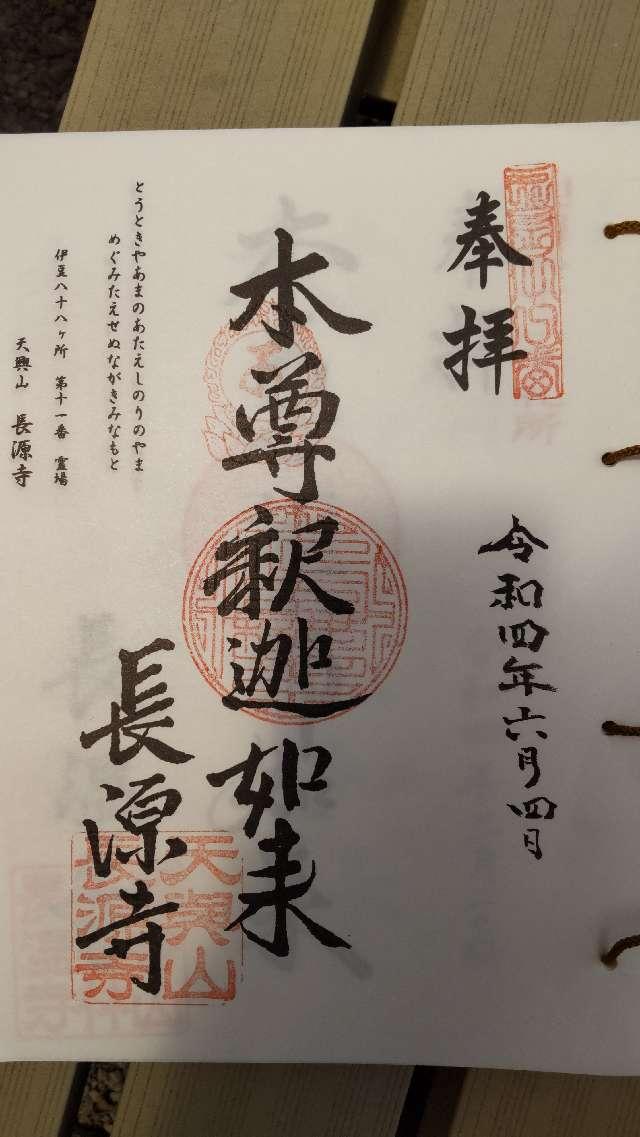 奉拝
令和四年六月四日
本尊釈迦如来
長源寺
天興山
長源寺
とうときやあまのあたえしのりのやま
めぐみたえせぬながきみなもと
伊豆八十八ヶ所 第十一番 霊場
天興山 長源寺